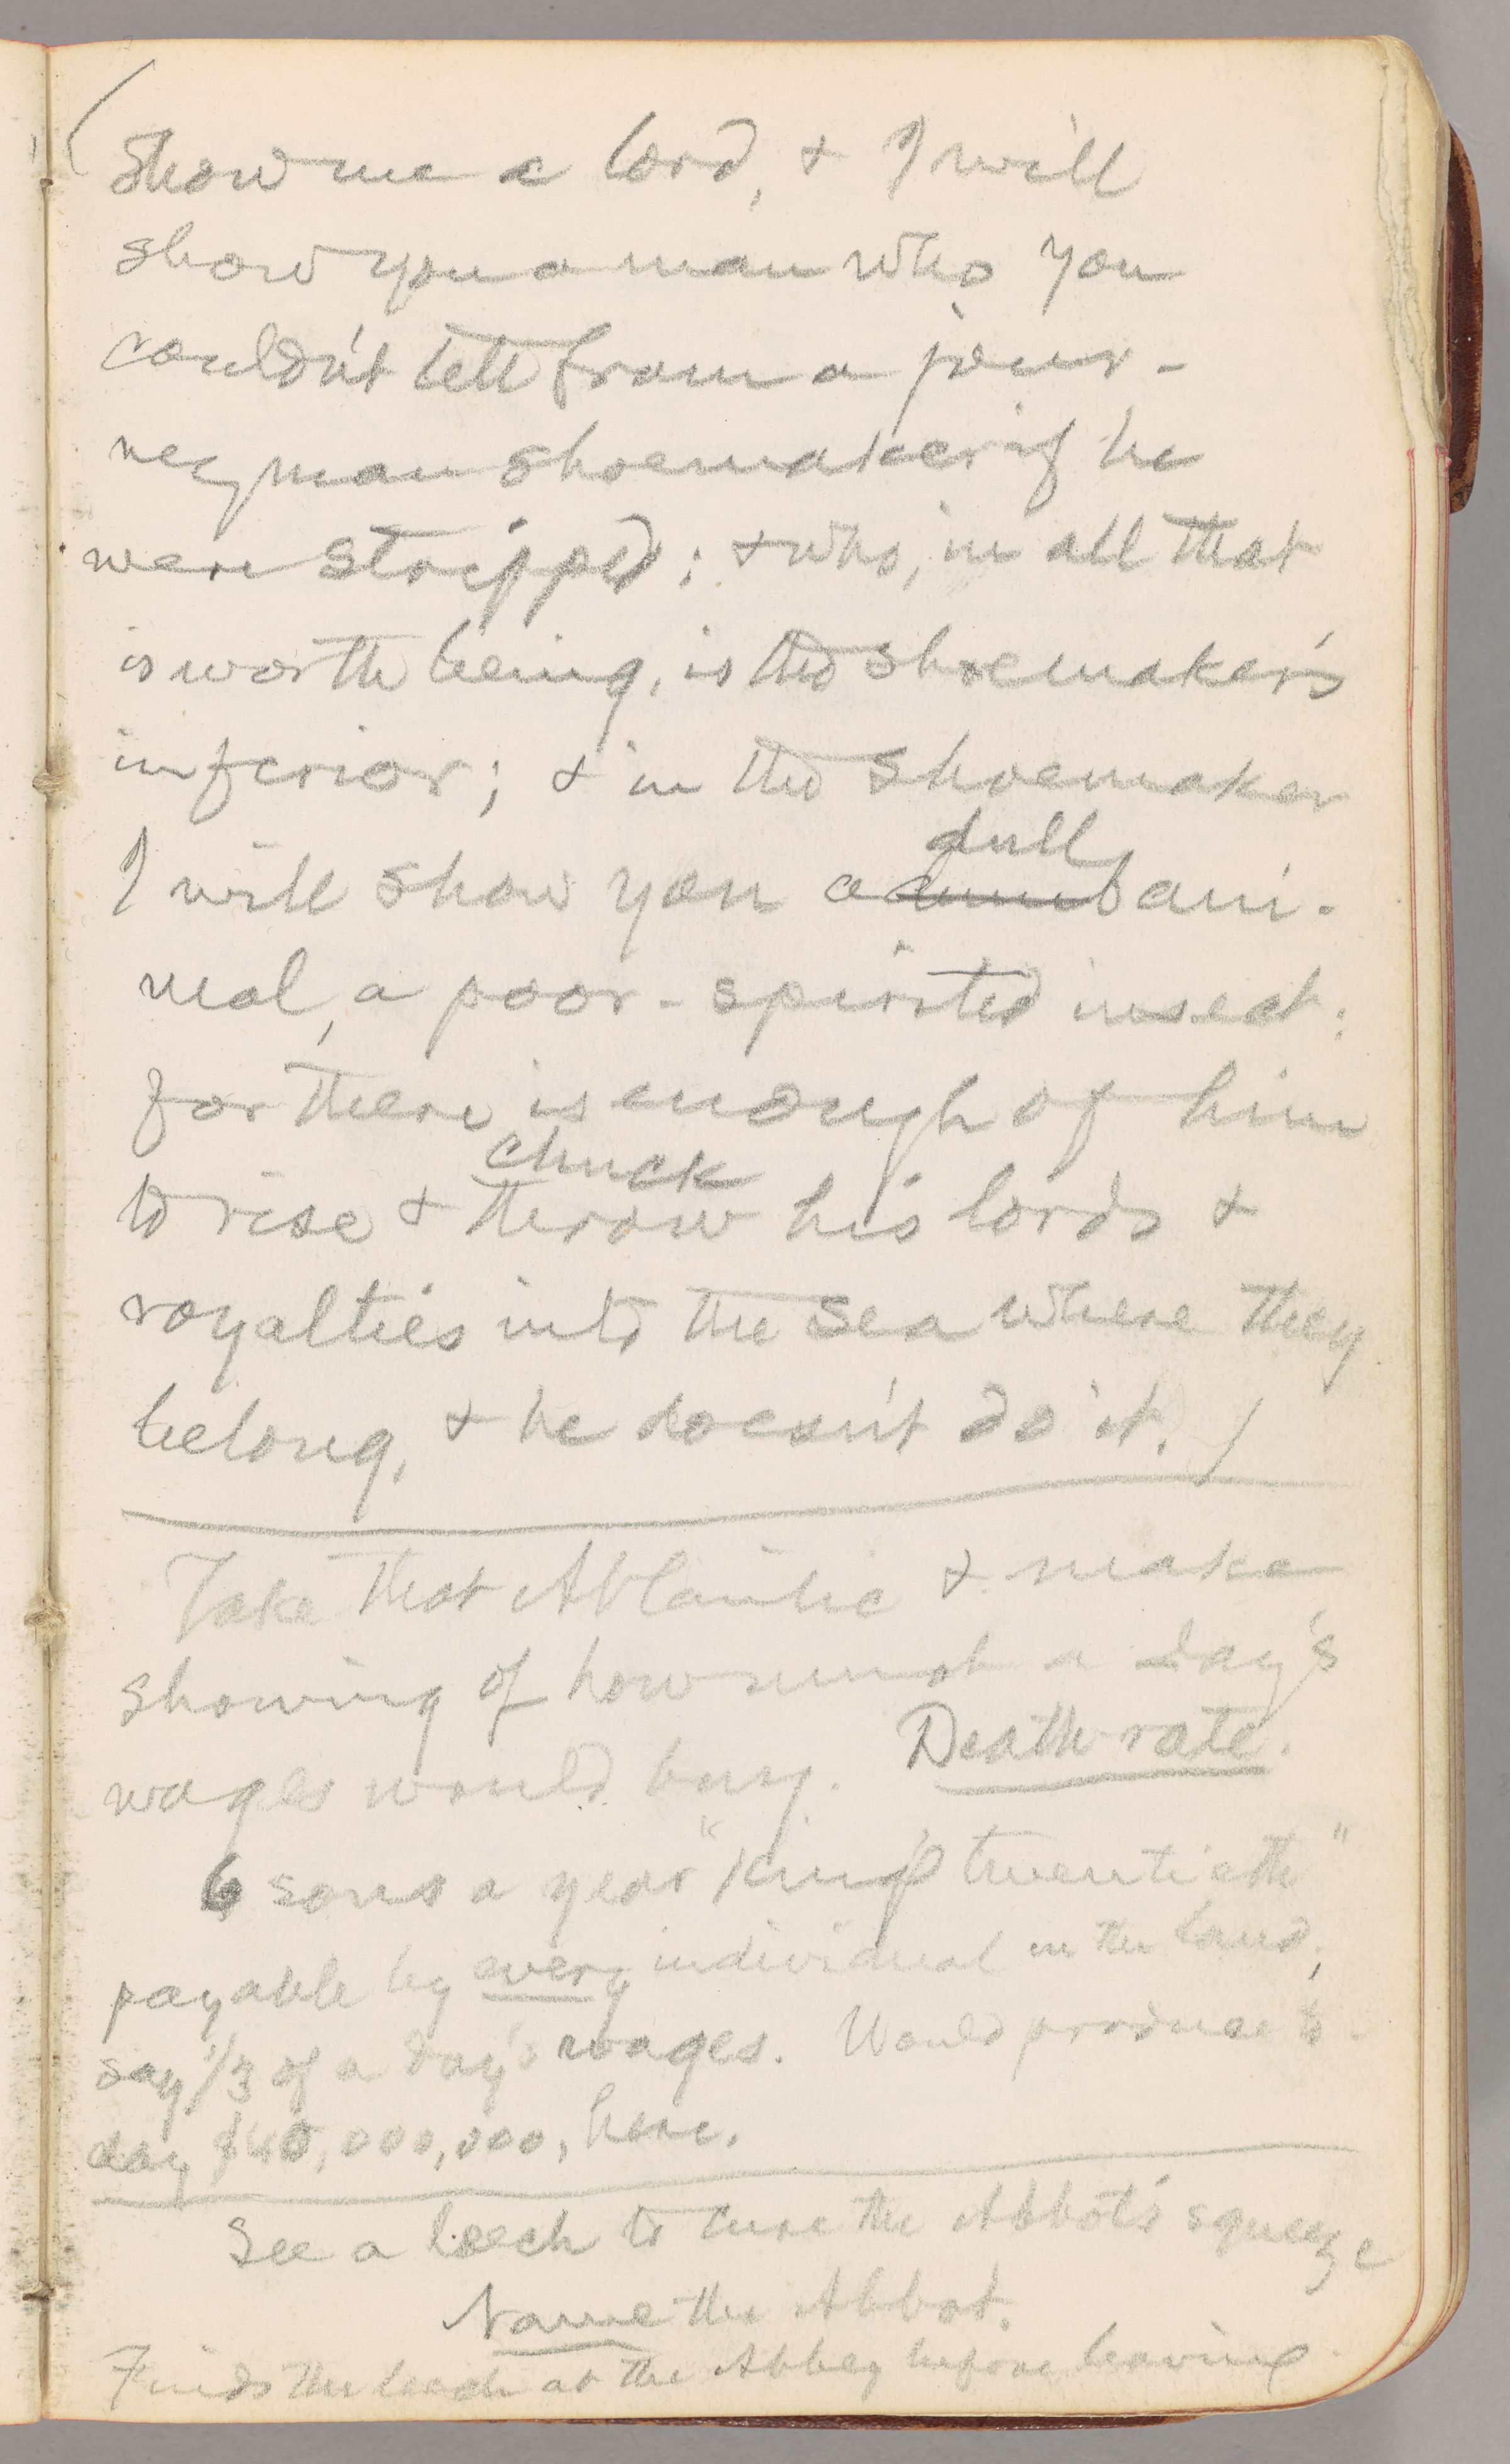 (Show me a lord, & I will
show you a man who you
couldn't tell from a jour-
neyman shoemaker if he
were stripped; & who, in all that
is worth being, is the shoemaker's
inferior; & in the shoemaker
dull
I will show you a dumb ani-
mal, a poor-spirited insect;
for there is enough of him
chuck
to rise & throw his lords &
royalties into the sea where they
belong, & he doesn't do it.)
Take that Atlantic & make
showing of how much a day's
wages would buy. Death-rate.
6 sous a year "King's twentieth"
payable by every individual in the land,
say 1/3 of a day's wages. Would produce to-
day $40,000,000, here.
See a leech to cure the Abbot's squeeze
Name the Abbot.
Finds the leech at the Abbey before leaving.